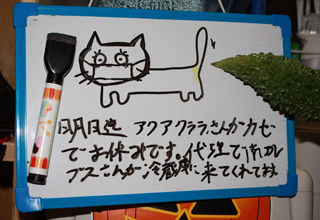 明日迄 アクアクララさんがカゼ
でお休みです。代理で南アル
プスさんが冷蔵庫に来てくれてます